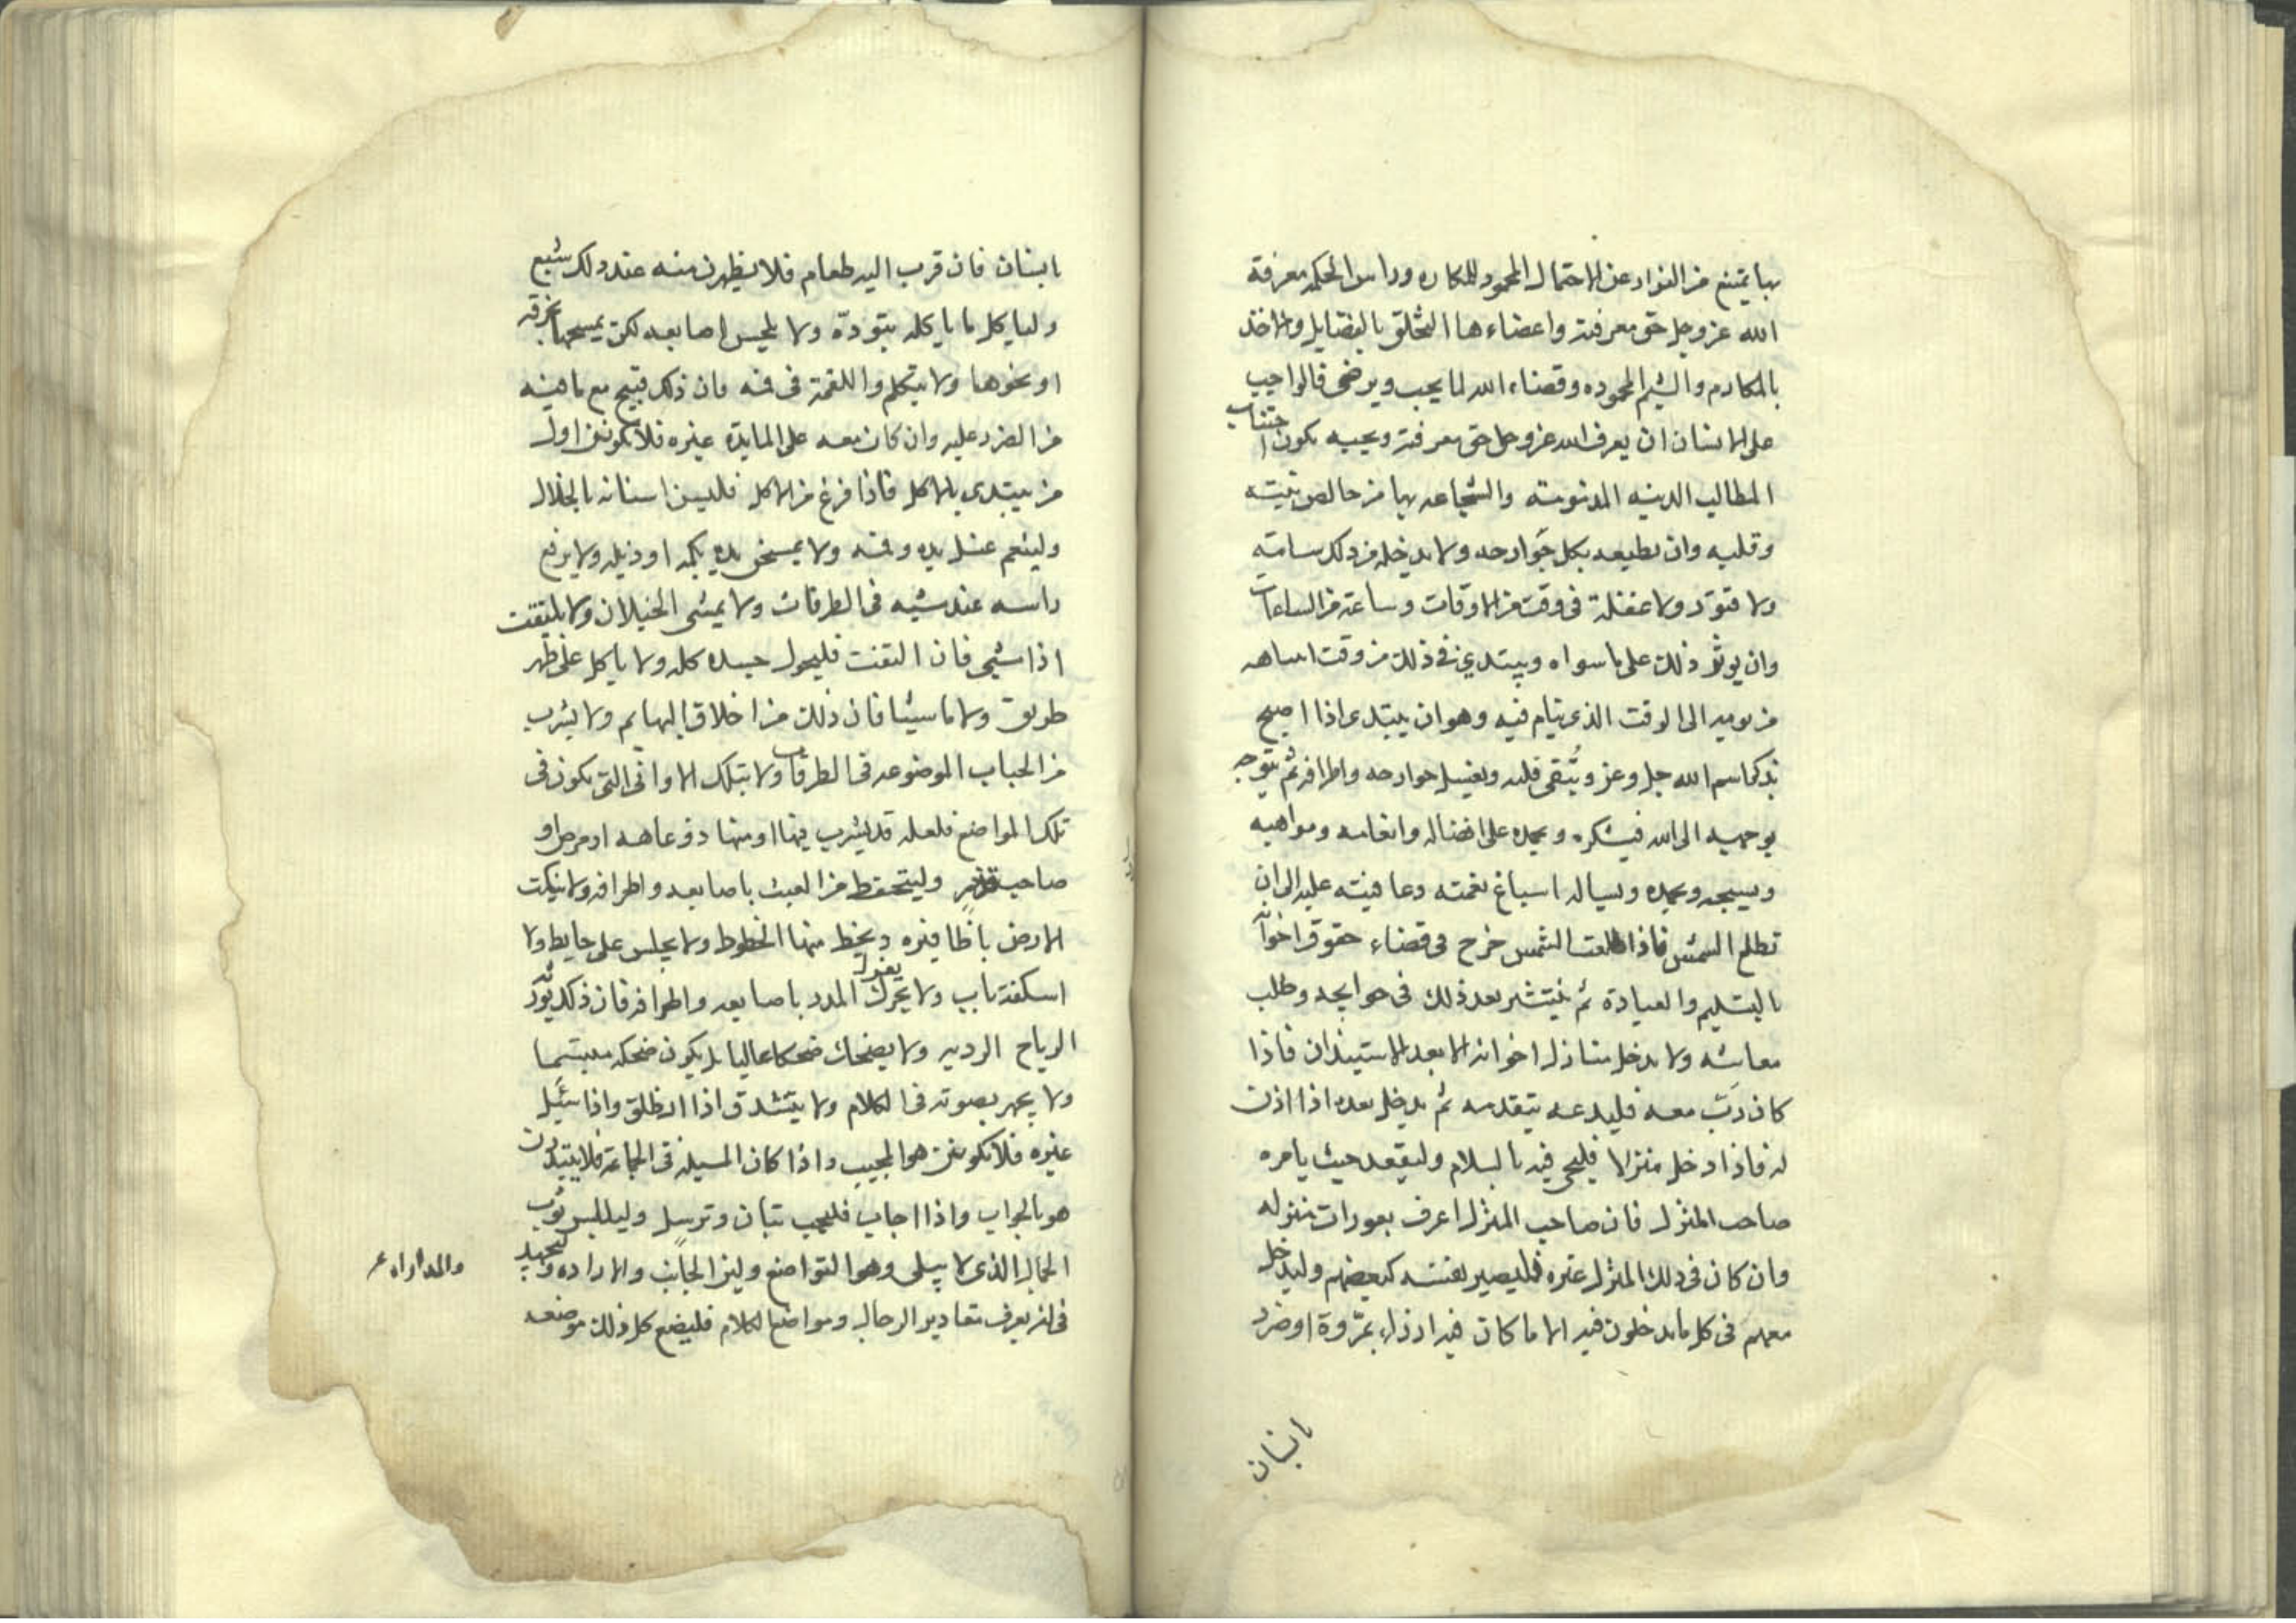 بها يمتنع من الفؤاد عن الاحتمال المحمود للمكاره وراس الحكمه معرفة
الله عز وجل حق معرفته واعضاءها التخلق بالفضايل والاخذ
بالمكارم والشيم المحموده وقضاء الله لما يحب ويرضى فالواجب
على الانسان ان يعرف الله عز وجل حق معرفته ويجب يكون اجتناب
المطالب الدنيه المذمومة والشجاعه بها من خالص نيته
وقلبه وان يطيعه بكل جوارحه ولا يدخله من ذلك سامة
ولا فتور ولا غفلة فى وقت من الاوقات وساعة من الساعات
وان يوثر ذلك على ما سواه ويبتدي فى ذلك من وقت انتباهه
من نومه الى الوقت الذى ينام فيه وهو ان يبتدى اذا اصبح
بذكر اسم الله جل وعز وينقى قلبه ويغسل جوارحه واطرافه ثم يتوجه
بوجهه الى الله فيشكره ويحمده على افضاله وانعامه ومواهبه
ويسبحه ويمجده ويساله اسباغ نعمته وعافيته عليه الى ان
تطلع الشمس فاذا طلعت الشمس خرج فى قضاء حقوق اخوانه
بالتسليم والعيادة ثم ينتشر بعد ذلك فى حوايجه وطلب
معاشه ولا يدخل منازل اخوانه الا بعد الاستيذان فاذا
كان دب معه فليدعه يتقدمه ثم يدخل بعده اذا اذن
له فاذا دخل منزلا فليحى فيه بالسلام وليقعد حيث يامره
صاحب المنزل فان صاحب المنزل اعرف بعورات منزله
وان كان فى ذلك المنزل غيره فليصير نفسه كبعضهم وليدخل
معهم فى كل ما يدخلون فيه الا ما كان فيه ازراء بمروة او ضرر
بانسان
بانسان فان قرب اليه طعام فلا يظهرن منه عند ذلك شبع
ولياكل ما ياكله بتودة ولا يلحس اصابعه لكن يمسحها بخرقه
او نحوها ولا يتكلم واللقمة فى فمه فان ذلك قبيح مع ما فيه
من الضرر عليه وان كان معه على المايدة غيره فلا يكونن اول
من يبتدى بالاكل فاذا فرغ من الاكل فليسن اسنانه بالخلال
ولينعم غسل يده وفمه ولا يمسحن يده بكمه او ذيله ولا يرفع
راسه عند مشيه فى الطرقات ولا يمشى الخيلان ولا يلتفت
اذا مشى فان التفت فليحول جسده كله ولا ياكل على ظهر
طريق ولا ماشيا فان ذلك من اخلاق البهايم ولا يشرب
من الجباب الموضوعه فى الطرقات ولا بتلك الاوانى التى يكون فى
تلك المواضع فلعله قد يشرب فيها او منها ذو عاهه او مرض او
صاحب قذر وليتحفظ من العبث باصابعه واطرافه ولا ينكت
الارض باظافيره ويخط منها الخطوط ولا يجلس على حايط ولا
اسكفة باب ولا يحرك المدد باصابعه واطرافه فان ذلك يورث
الرياح الرديه ولا يضحك ضحكا عاليا بل يكون ضحكه مبتسما
ولا يجهر بصوته فى الكلام ولا يتشدق اذا انطلق واذا سئل
غيره فلا يكونن هو المجيب واذا كان المسيله فى الجماعة فلا يبتدرن
هو بالجواب واذا اجاب فليجب بتان وترسل وليلبس ثوب
الجمال الذى لا يبلى وهو التواضع ولين الجانب والاراده وليجهد
والمداراه
فى ان يعرف مقادير الرجال ومواضع الكلام فليضع كل ذلك موضعه